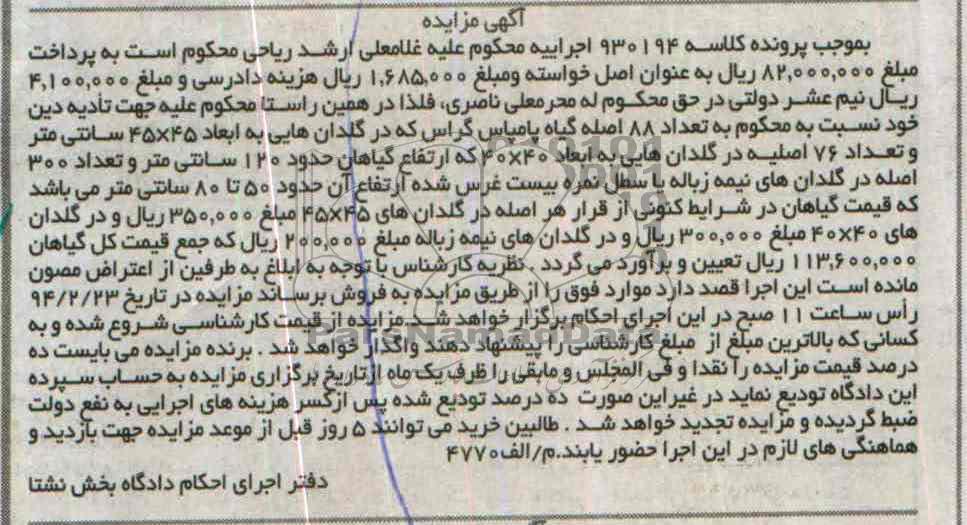 آگهی مزایده
بموجب پرونده کلاسه ۹۳۰۱۹۴ اجراییه محکوم علیه غلامعلی ارشد ریاحی محکوم است به پرداخت
مبلغ ۸۲,۰۰۰,۰۰۰ ریال به عنوان اصل خواسته ومبلغ ۱,۶۸۵,۰۰۰ ریال هزینه دادرسی و مبلغ ۴,۱۰۰,۰۰۰
ریال نیم عشر دولتی در حق محکوم له محرمعلی ناصری، فلذا در همین راستا محکوم علیه جهت تأدیه دین
خود نسبت به محکوم به تعداد ۸۸ اصله گیاه پامپاس گراس که در گلدان هایی به ابعاد ۴۵×۴۵ سانتی متر
و تعداد ۷۶ اصلیه در گلدان هایی به ابعاد ۴۰×۴۰ که ارتفاع گیاهان حدود ۱۲۰ سانتی متر و تعداد ۳۰۰
اصله در گلدان های نیمه زباله یا سطل نمره بیست غرس شده ارتفاع آن حدود ۵۰ تا ۸۰ سانتی متر می باشد
که قیمت گیاهان در شرایط کنونی از قرار هر اصله در گلدان های ۴۵×۴۵ مبلغ ۳۵۰,۰۰۰ ریال و در گلدان
های ۴۰×۴۰ مبلغ ۳۰۰,۰۰۰ ریال و در گلدان های نیمه زباله مبلغ ۲۰۰,۰۰۰ ریال که جمع قیمت کل گیاهان
۱۱۳,۶۰۰,۰۰۰ ریال تعیین و برآورد می گردد . نظریه کارشناس با توجه به ابلاغ به طرفین از اعتراض مصون
مانده است این اجرا قصد دارد موارد فوق را از طریق مزایده به فروش برساند مزایده در تاریخ ۹۴/۲/۲۳
رأس ساعت ۱۱ صبح در این اجرای احکام برگزار خواهد شد.مزایده از قیمت کارشناسی شروع شده و به
کسانی که بالاترین مبلغ از مبلغ کارشناسی را پیشنهاد دهند واگذار خواهد شد . برنده مزایده می بایست ده
درصد قیمت مزایده را نقدا و فی المجلس و مابقی را ظرف یک ماه ازتاریخ برگزاری مزایده به حساب سپرده
این دادگاه تودیع نماید در غیراین صورت ده درصد تودیع شده پس ازکسر هزینه های اجرایی به نفع دولت
ضبط گردیده و مزایده تجدید خواهد شد . طالبین خرید می توانند ۵ روز قبل از موعد مزایده جهت بازدید و
هماهنگی های لازم در این اجرا حضور یابند.م/الف۴۷۷۰
دفتر اجرای احکام دادگاه بخش نشتا
ParsNamadData